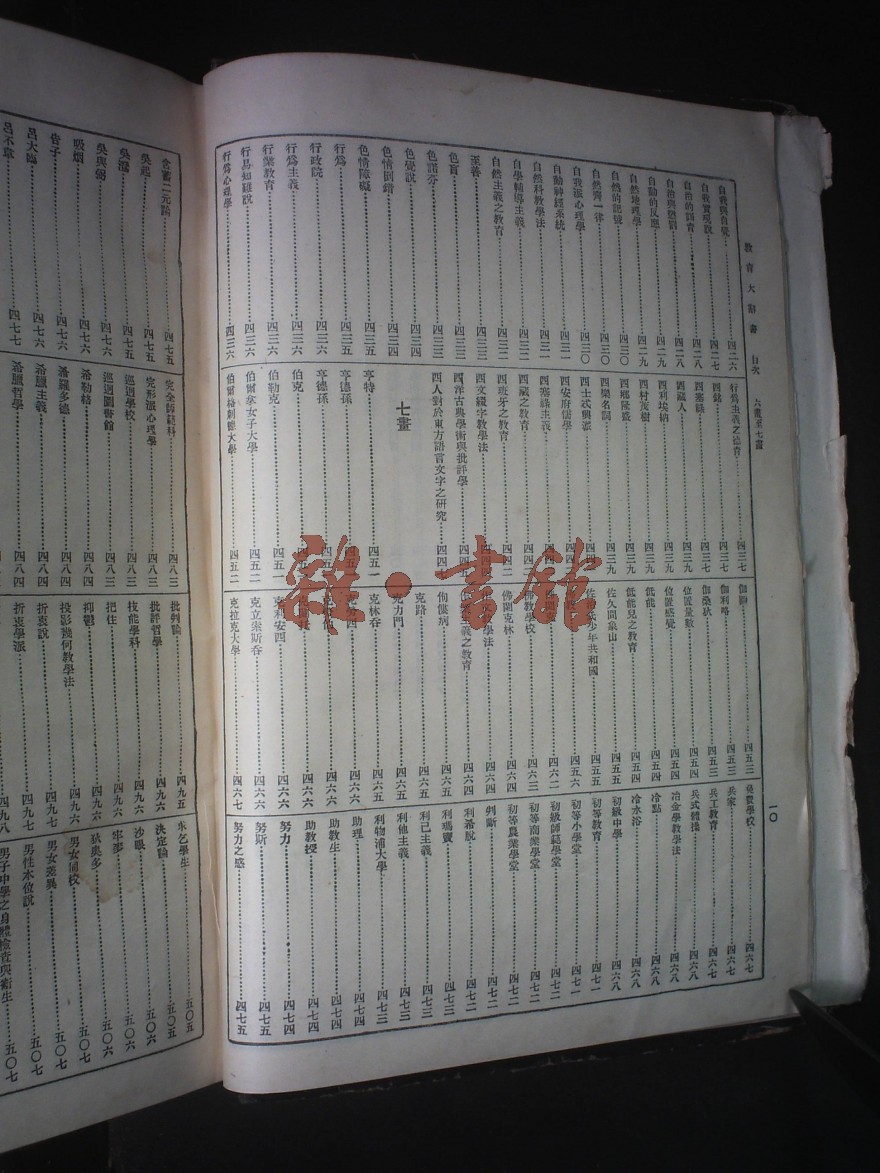 教育大辭書　目次　六畫至七畫
一〇
自我與自覺……四二六
自我實現說……四二七
自治的訓育……四二八
自治與懲罰……四二八
自動的反應……四二九
自然地理學……四二九
自然的記號……四三〇
自然齊一律……四三〇
自我派心理學……四三〇
自動神經系統……四三一
自然科教學法……四三一
自學輔導主義……四三一
自然主義之教育……四三二
至善……四三三
色盲……四三三
色諾芬……四三三
色覺說……四三四
色情倒錯……四三四
色情障礙……四三五
行為……四三五
行政院……四三六
行為主義……四三六
行業教育……四三六
行易知難說……四三六
行為心理學……四三六
行為主義之德育……四三七
西銘……四三七
西塞祿……四三七
西藏人……四三九
西利埃納……四三九
西村茂樹……四三九
西鄉隆盛……四三九
西樂名詞……四三九
西班牙之教育……四四二
西文綴字教學法
西洋古典學術與批評學
西人對於東方語言文字之研究
七畫
亨特……四五一
亨德孫
亨德孫
伯克
伯勒克……四五一
伯爾拿女子大學……四五二
伯爾格刺德大學……四五二
伽圖……四五三
伽利略……四五三
伽桑狄……四五三
位置量數……四五四
位置感覺……四五四
低能……四五四
低能兒之教育……四五四
佐久間象山……四五五
佛蘭克林……四六四
佝僂病……四六五
克路……四六五
克力門……四六五
克林吞……四六五
克利安西……四六六
克立索斯吞……四六六
克拉克大學……四六七
免費學校……四六七
兵家……四六七
兵工教育……四六七
兵式體操……四六八
冶金學教學法……四六八
冷點……四六八
冷水浴……四六八
初級中學……四六八
初等教育……四七一
初等小學堂……四七一
初級師範學堂……四七二
初等商業學堂……四七二
初等農業學堂……四七二
判斷……四七二
利希脫……四七三
利瑪竇……四七三
利己主義……四七三
利他主義……四七三
利物浦大學……四七三
助理……四七四
助教生……四七四
助教授……四七四
努力……四七四
努斯……四七五
努力之感……四七五
含蓄二元論……四七五
吳起……四七五
吳澄……四七五
吳與弼……四七六
吸烟……四七六
告子……四七六
呂大臨……四七六
呂不韋……四七七
完全師範科……四八三
完形派心理學……四八三
巡迴學校……四八三
巡迴圖書館……四八三
希勒格……四八四
希羅多德……四八四
希臘主義……四八四
希臘哲學……四八四
批判論……四九五
批評哲學……四九六
技能學科……四九六
把住……四九六
抑鬱……四九六
投影幾何教學法……四九六
折衷說……四九七
折衷學派……四九八
求乞學生……五〇五
決定論……五〇五
沙眼……五〇六
牢寥……五〇六
狄奧多……五〇六
男女同校……五〇七
男女差異……五〇七
男性本位說……五〇七
男子中學之身體檢查與衛生……五〇七
雜·書館